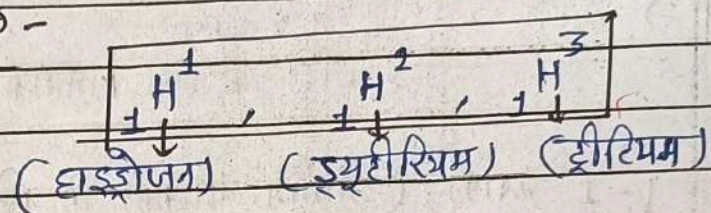 ₁H¹ , ₁H² , ₁H³
(हाइड्रोजन) (ड्यूटीरियम) (ट्रीटियम)